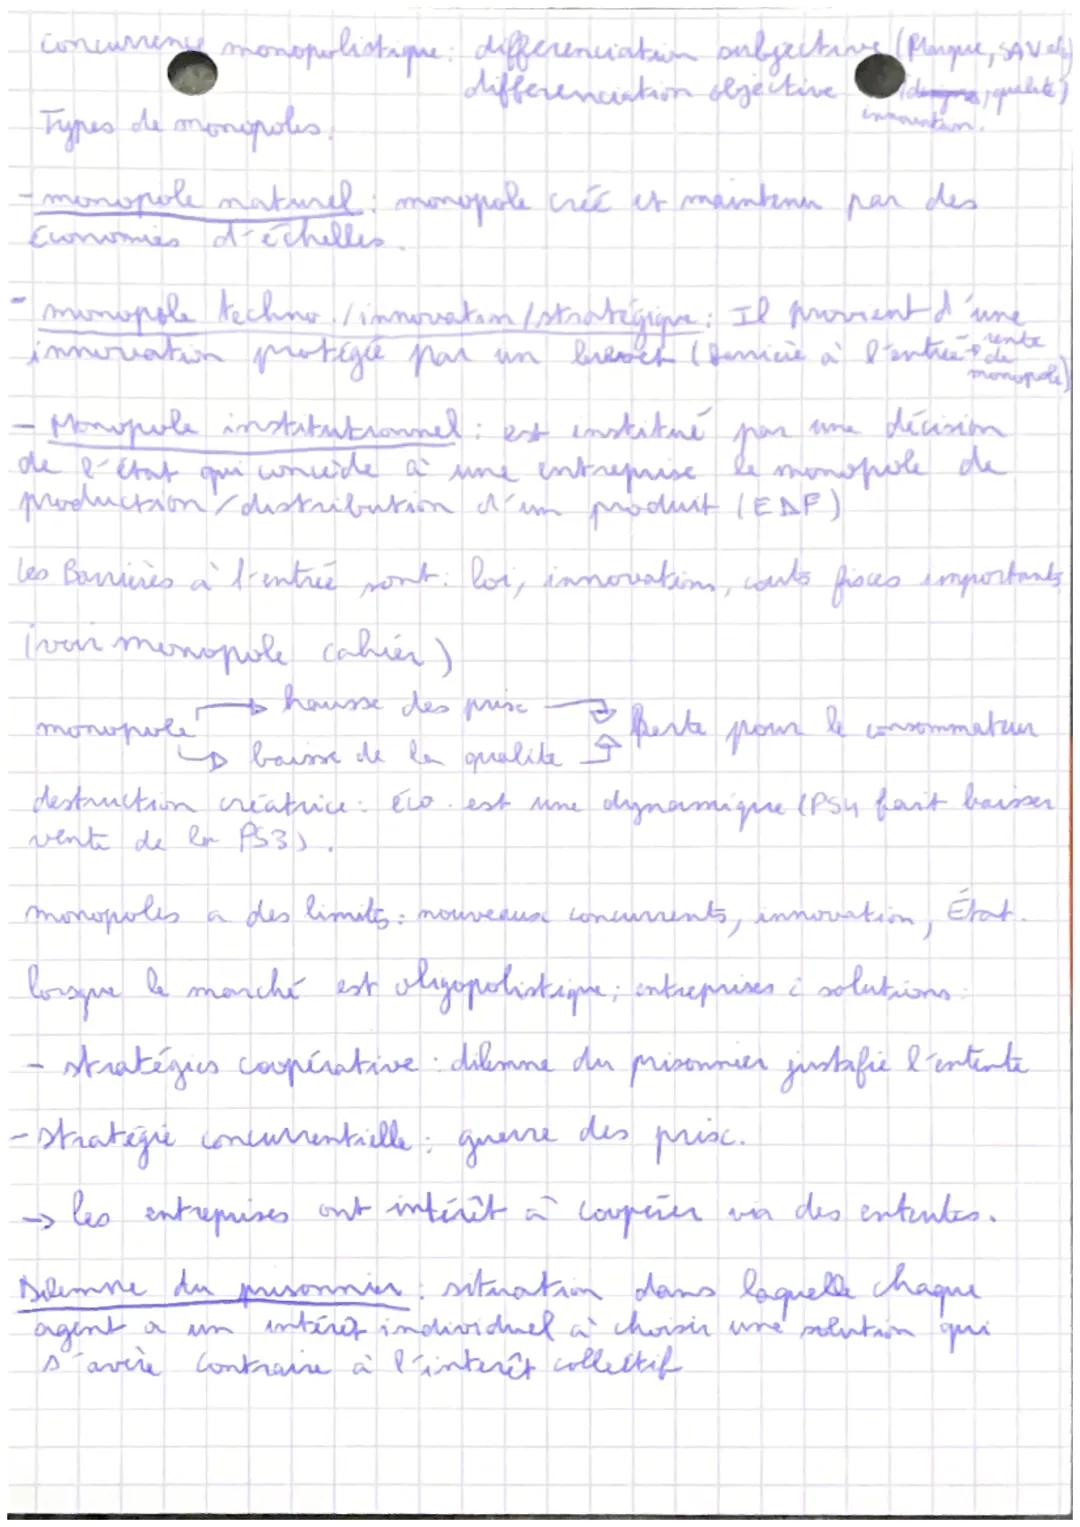 concurrence monopolistique : differenciation subjective (Marque, SAV etc)
differenciation objective (designs, qualité)
innovation.
Types de monopoles.
- monopole naturel : monopole créé et maintenu par des
économies d'échelles.
- monopole techno./innovation/stratégique : Il provient d'une
innovation protégée par un brevet (Barrière à l'entrée → rente
de
monopole)
- Monopole institutionnel : est institué par une décision
de l'état qui concède à une entreprise le monopole de
production/distribution d'un produit (EDF)
Les Barrières à l'entrée sont : loi, innovations, couts fixes importants
(voir monopole cahier)
monopole → hausse des prix → Perte pour le consommateur
→ baisse de la qualité
destruction créatrice : éco. est une dynamique (PS4 fait baisser
vente de la PS3).
monopoles a des limites : nouveaux concurrents, innovation, État.
lorsque le marché est oligopolistique ; entreprises : solutions :
- stratégies coopérative : dilemne du prisonnier justifie l'entente
- Stratégie concurrentielle : guerre des prix.
→ les entreprises ont intérêt à coopérer via des ententes.
Dilemne du prisonnier : situation dans laquelle chaque
agent a un intérêt individuel à choisir une solution qui
s'avère contraire à l'interêt collectif